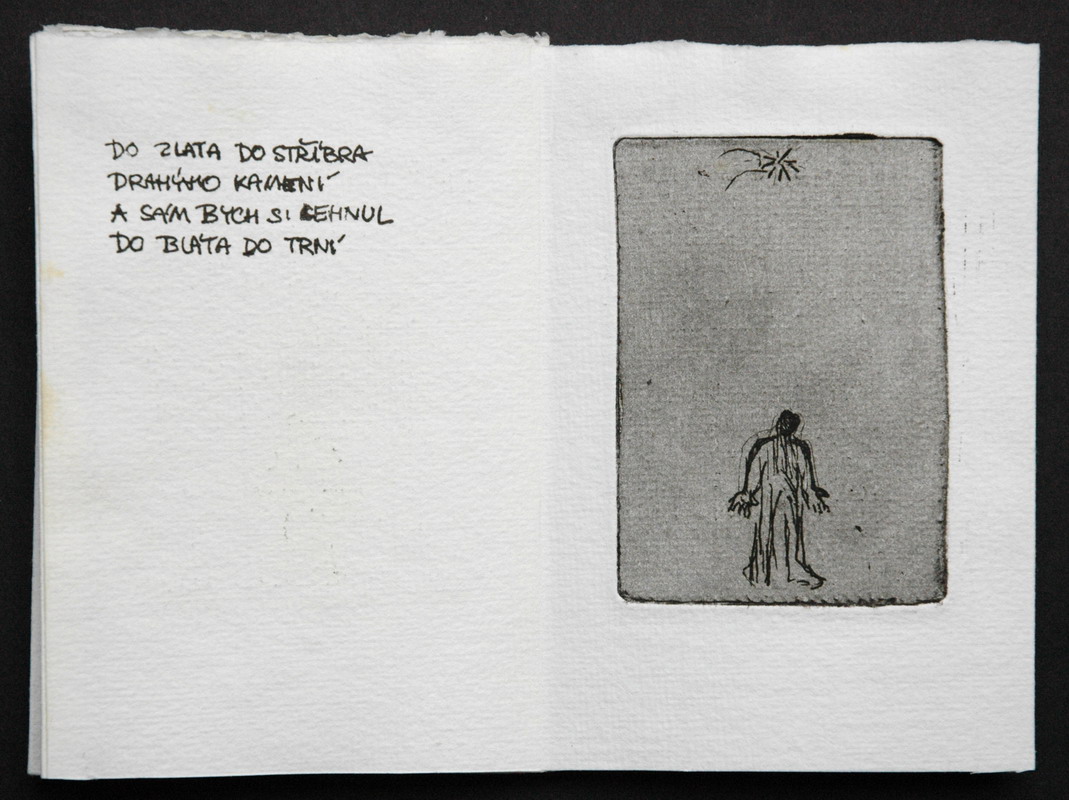 DO ZLATA DO STŘÍBRA
DRAHÝHO KAMENÍ
A SÁM BYCH SI LEHNUL
DO BLÁTA DO TRNÍ